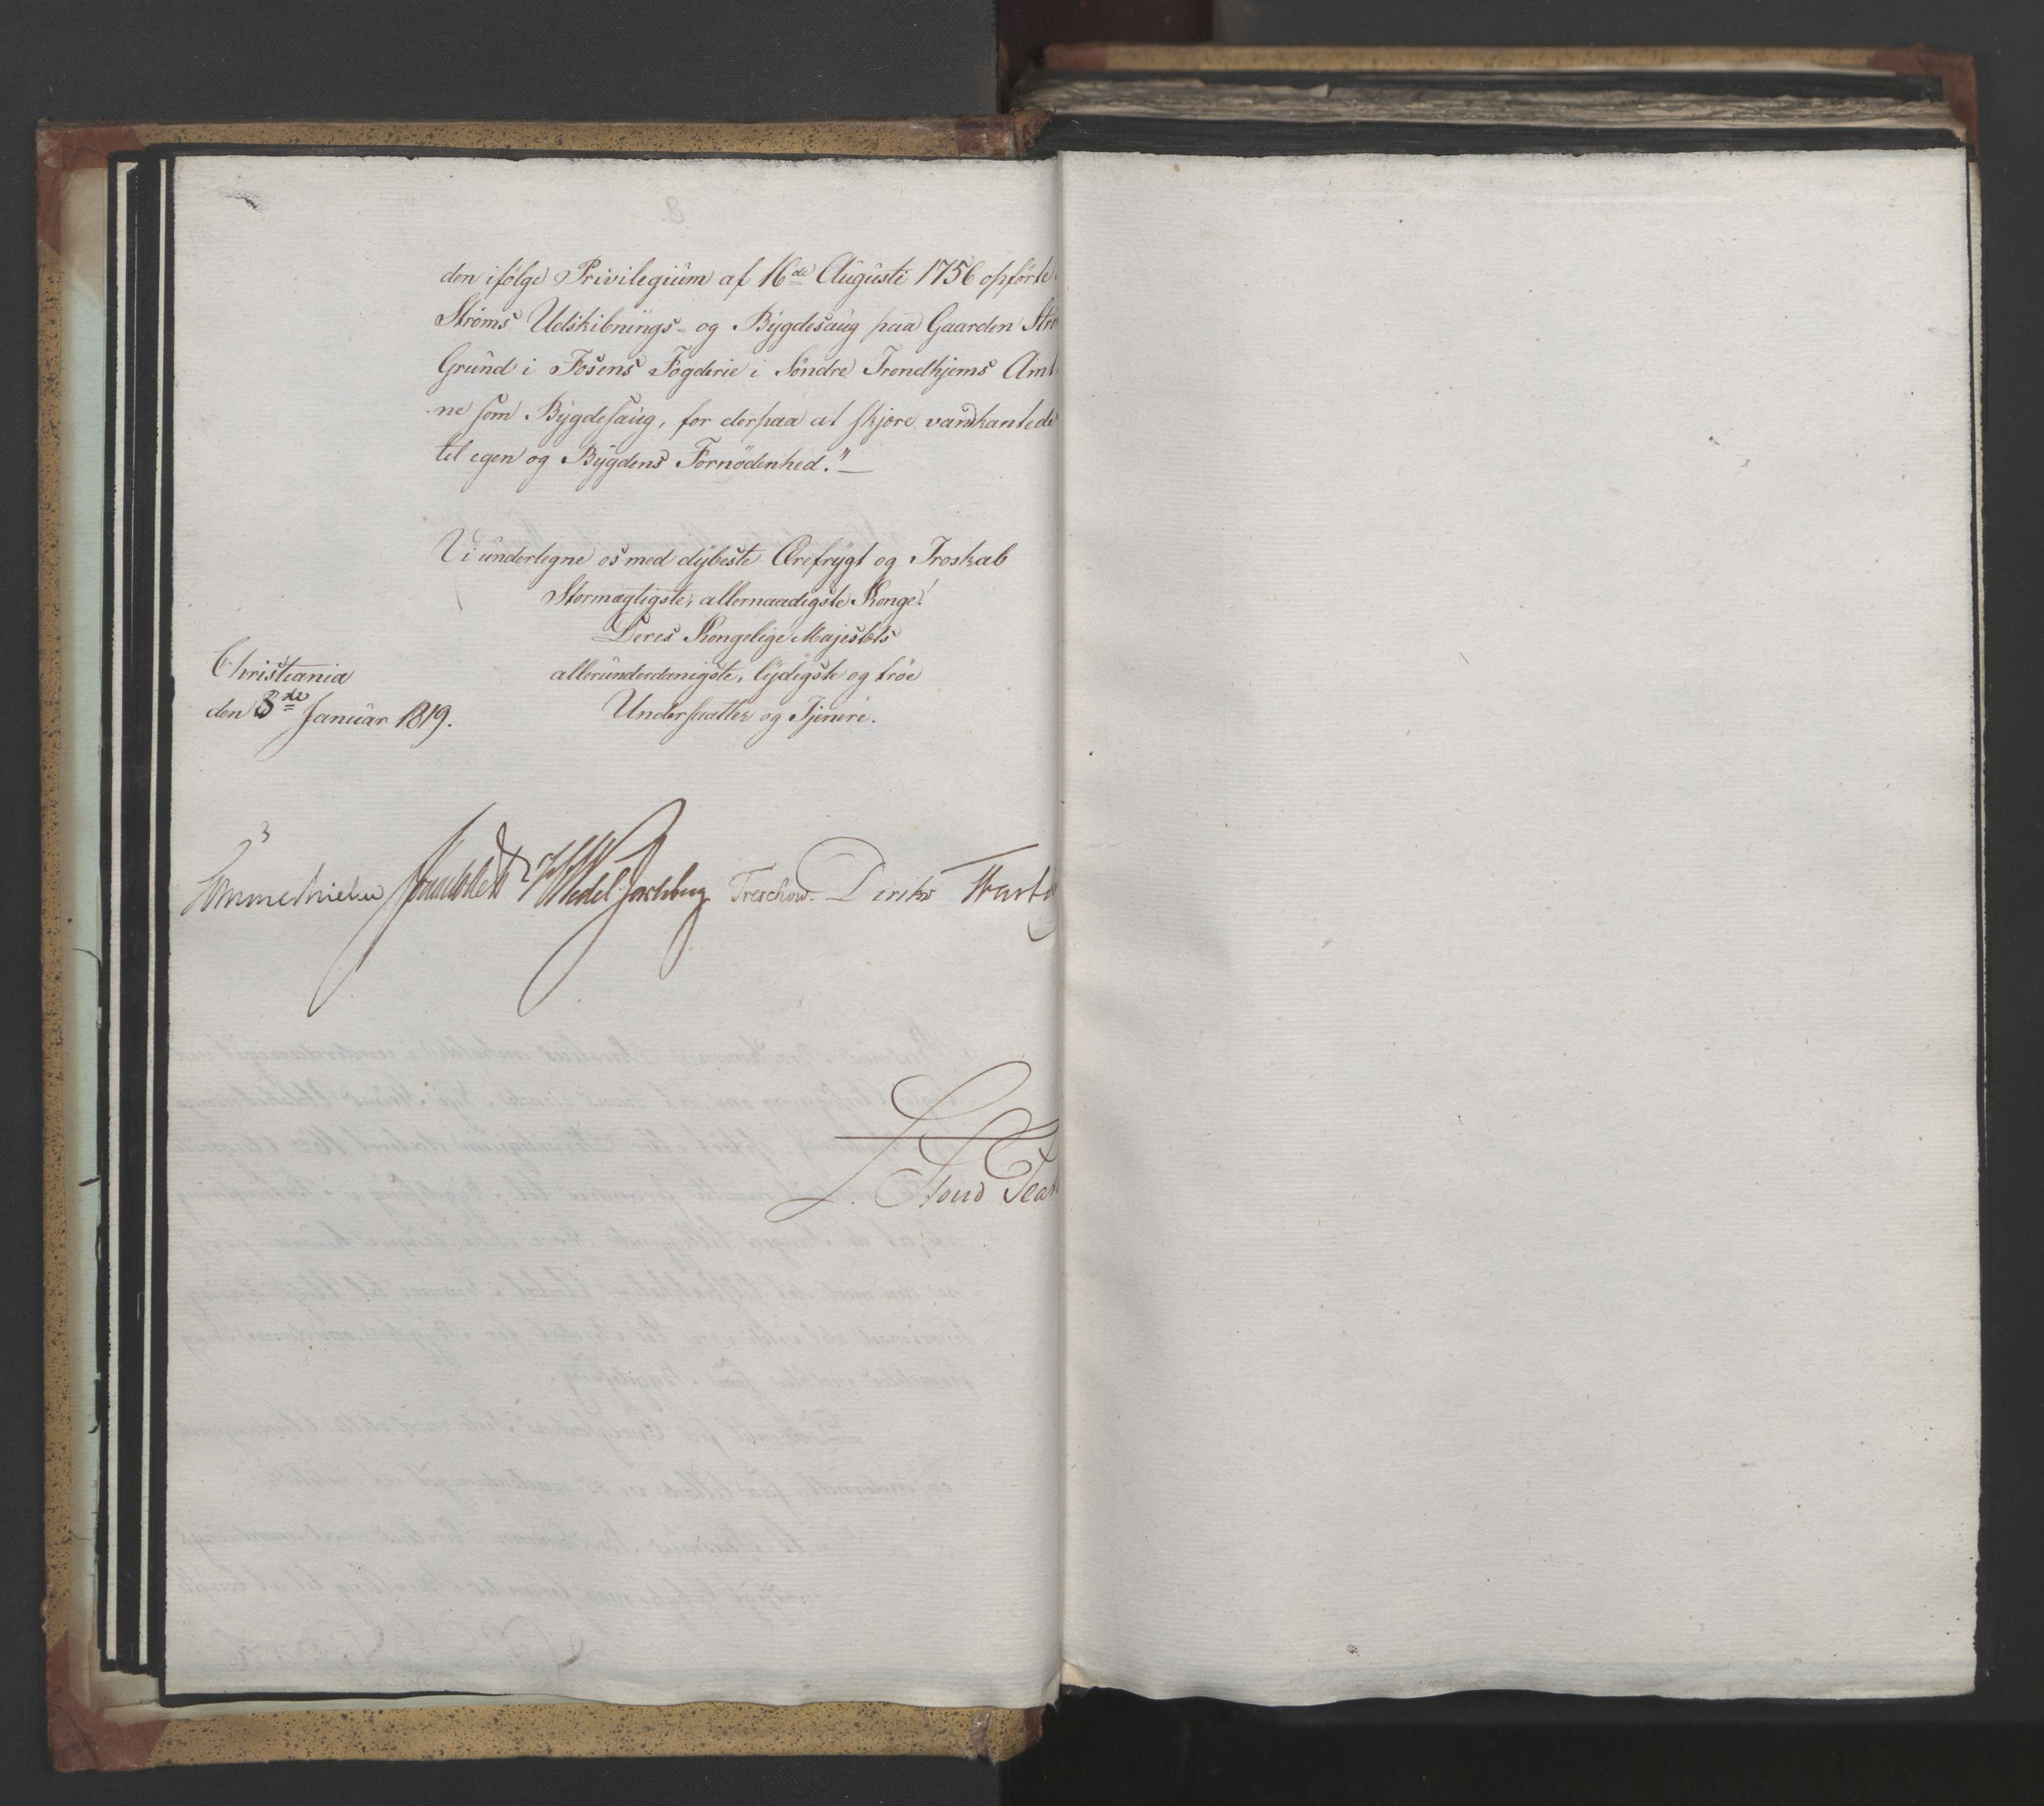 den ifølge Privilegium af 16de Augusti 1756 opførte
Strøms Udskibnings- og Bygdesaug paa Gaarden Strø
Grund i Fosens Fogderie i Søndre Trondhjems Amt
ne som Bygdesaug, for derpaa at skjære vandkantede
til egen og Bygdens Fornødenhed."
Vi undertegne os med dybeste Ærefrygt og Troskab
Stormægtigste, allernaadigste Konge!
Deres Kongelige Majestæts
allerunderdanigste, lydigste og troe
Undersaatter og Tjenere.
Christiania
den 8de Januar 1819.
Sommerhielm Wedel Jarlsberg Treschow. Diriks
L. Stoud